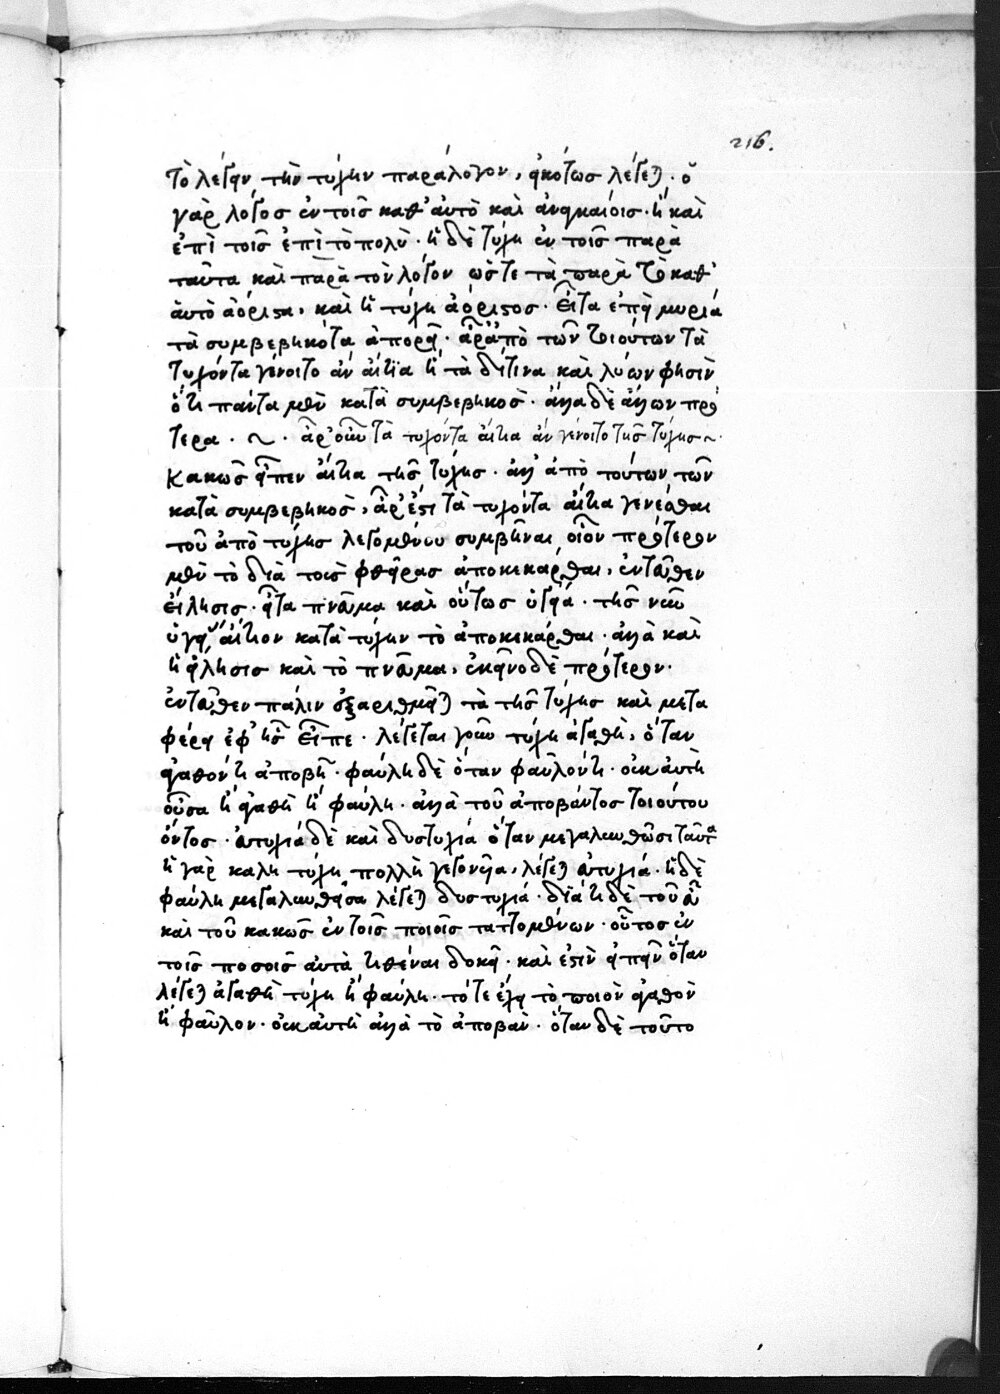 216.
τὸ λέγειν τὴν τύχην παράλογον, εἰκότως λέγεται· ὁ
γὰρ λόγος ἐν τοῖς καθ' αὑτὸ καὶ ἀναγκαίοις· ἢ καὶ
ἐπὶ τοῖς ἐπὶ τὸ πολύ· ἡ δὲ τύχη ἐν τοῖς παρὰ
ταῦτα καὶ παρὰ τὸν λόγον ὥστε τὰ παρὰ τὸ καθ'
αὑτὸ ἀόριστα, καὶ ἡ τύχη ἀόριστος· εἶτα ἐπεὶ μυρία
τὰ συμβεβηκότα ἀπορεῖ· ἆρα ἀπὸ τῶν τοιούτων τὰ
τυχόντα γένοιτο ἂν αἴτια ἢ τὰ δή τινα καὶ λύων φησὶν
ὅτι πάντα μὲν κατὰ συμβεβηκός· ἄλλα δὲ ἄλλων πρό
τερα· ~ · ἆρ' οὖν τὰ τυχόντα αἴτια ἂν γένοιτο τῆς τύχης ~·
κακῶς εἶπεν αἴτια τῆς τύχης· ἀλλ' ἀπὸ τούτων τῶν
κατὰ συμβεβηκὸς, ἆρ' ἔστι τὰ τυχόντα αἴτια γενέσθαι
τοῦ ἀπὸ τύχης λεγομένου συμβῆναι οἷον πρότερον
μὲν τὸ διὰ τοὺς φθεῖρας ἀποκεκάρθαι, ἐντεῦθεν
εἵλησις· εἶτα πνεῦμα καὶ οὕτως ὑγεία· τῆς νῦν
ὑγείας αἴτιον κατὰ τύχην τὸ ἀποκεκάρθαι· ἀλλὰ καὶ
ἡ εἵλησις καὶ τὸ πνεῦμα, ἐκεῖνο δὲ πρότερον·
ἐντεῦθεν πάλιν ἐξαριθμεῖται τὰ τῆς τύχης καὶ μετα
φέρει ἐφ' ἧς εἶπε· λέγεται γοῦν τύχη ἀγαθὴ, ὅταν
ἀγαθόν τι ἀποβῇ· φαύλη δὲ ὅταν φαῦλόν τι· οὐκ αὐτὴ
οὖσα ἢ ἀγαθὴ ἢ φαύλη· ἀλλὰ τοῦ ἀποβάντος τοιούτου
ὄντος· εὐτυχία δὲ καὶ δυστυχία ὅταν μεγαλυνθῶσι ταῦτα
ἡ γὰρ καλὴ τύχη πολλὴ γεγονυῖα, λέγεται εὐτυχία· ἡ δὲ
φαύλη μεγαλυνθεῖσα λέγεται δυστυχία· διὰ τί δὲ τοῦ εὖ
καὶ τοῦ κακῶς ἐν τοῖς ποιοῖς ταττομένων· οὗτος ἐν
τοῖς ποσοῖς αὐτὰ τιθέναι δοκεῖ· καὶ ἔστιν εἰπεῖν ὅταν
λέγεται ἀγαθὴ τύχη ἢ φαύλη· τότε ἔχει τὸ ποιὸν ἀγαθὸν
ἢ φαῦλον· οὐκ αὐτὴ ἀλλὰ τὸ ἀποβάν· ὅταν δὲ τοῦτο